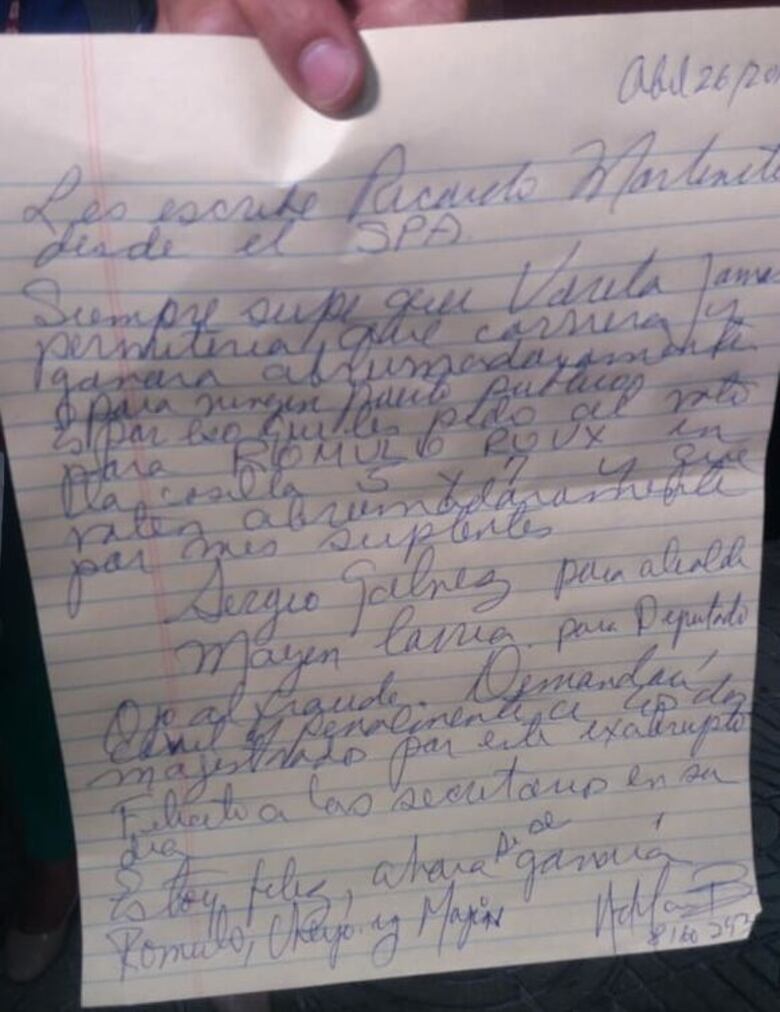 Abril 26/20
Les escribe Ricardo Martinelli
desde el SPA
Siempre supe que Varela jamas
permitiria que corriera y
ganara abrumadoramente
para ningun Puesto Publico
Es por eso que les pido el voto
para ROMULO ROUX en
la casilla 5 y 7 y que
voten abrumadoramente
por mis suplentes
Sergio Galvez para alcalde
Mayer para Deputado
Ojo al fraude. Demandaré
civil y penalmente a
magistrado por este exabrupto
Felicito a las secretarias en su
dia
Estoy feliz, ahora si se ganará
Romulo, y
8160 293